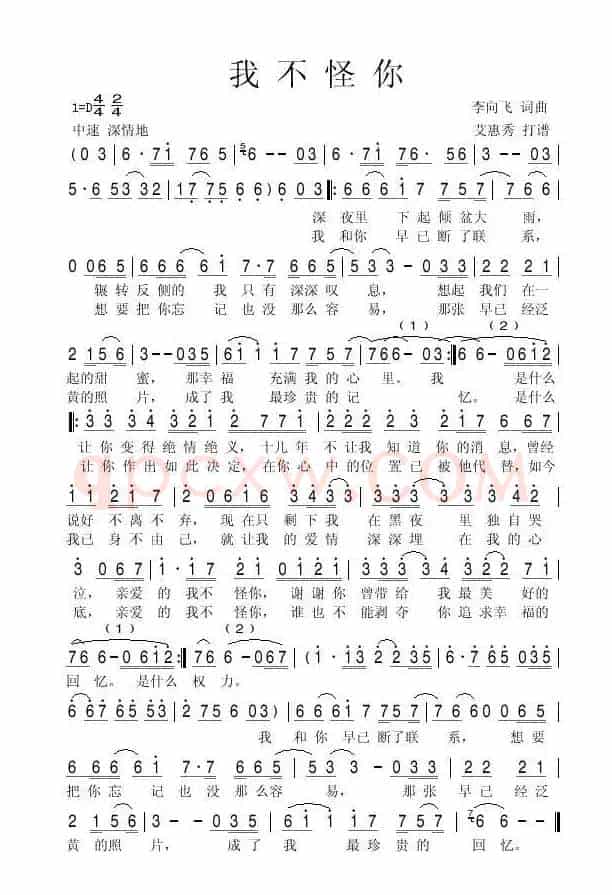 我不怪你
1=D 4/4 2/4
李向飞 词曲
中速 深情地
艾惠秀 打谱
(0 3 | 6·71 765 | 6--03 | 6·71 76·5 | 3--056 |
5·653 32 | 17756 6) 603 |: 666 17 757 | 267-- |
深夜里 下起倾盆大 雨，
我和你 早已断了联 系，
0065 | 666 61 7·7 665 | 533-033 | 22 21 |
辗转反侧的 我 只有深深叹 息， 想起我们在一
想要把你忘 记也没那么容 易， 那张早已经泛
(1) (2)
2 156 | 3--035 | 611 17757 | 766-03 :| 66-0612 |
起的甜 蜜， 那幸福 充满我的心 里。我 是什么
黄的照 片， 成了我 最珍贵的记 忆。 是什么
|: 33 34 321 2 771 | 222 23 217 667 |
让你变得绝情绝义，十几年 不让我知道你的消息，曾经
让你作出如此决定，在你心中的位置已被他代替，如今
11 217 2 0612 | 3433 343 | 333 342 |
说好 不离不弃， 现在只 剩下我 在黑夜 里独自哭
我已 身不由己， 就让我 的爱情 深深埋 在我的心
3 067 | 1·217 21 0121 | 7 333 34 322 71 |
泣，亲爱的 我不 怪你，谢谢你 曾带给 我最美 好的
底，亲爱的 我不 怪你，谁也不 能剥夺 你追求幸福的
(1) (2)
766-0612 :| 766-067 | (1·13 2235 | 6·765 035 |
回忆。是什么 权力。
667 6553 | 275603) | 6661 7757 | 7660065 |
我 和你 早已断了联 系， 想要
666 61 7·7 665 | 533-033 | 22 21 |
把你忘记 也没那么容 易， 那张早已经泛
2 156 | 3--035 | 611 17757 | 766-- ||
黄 的照 片， 成了 我 最珍 贵的 回忆。
qpcxw.COM